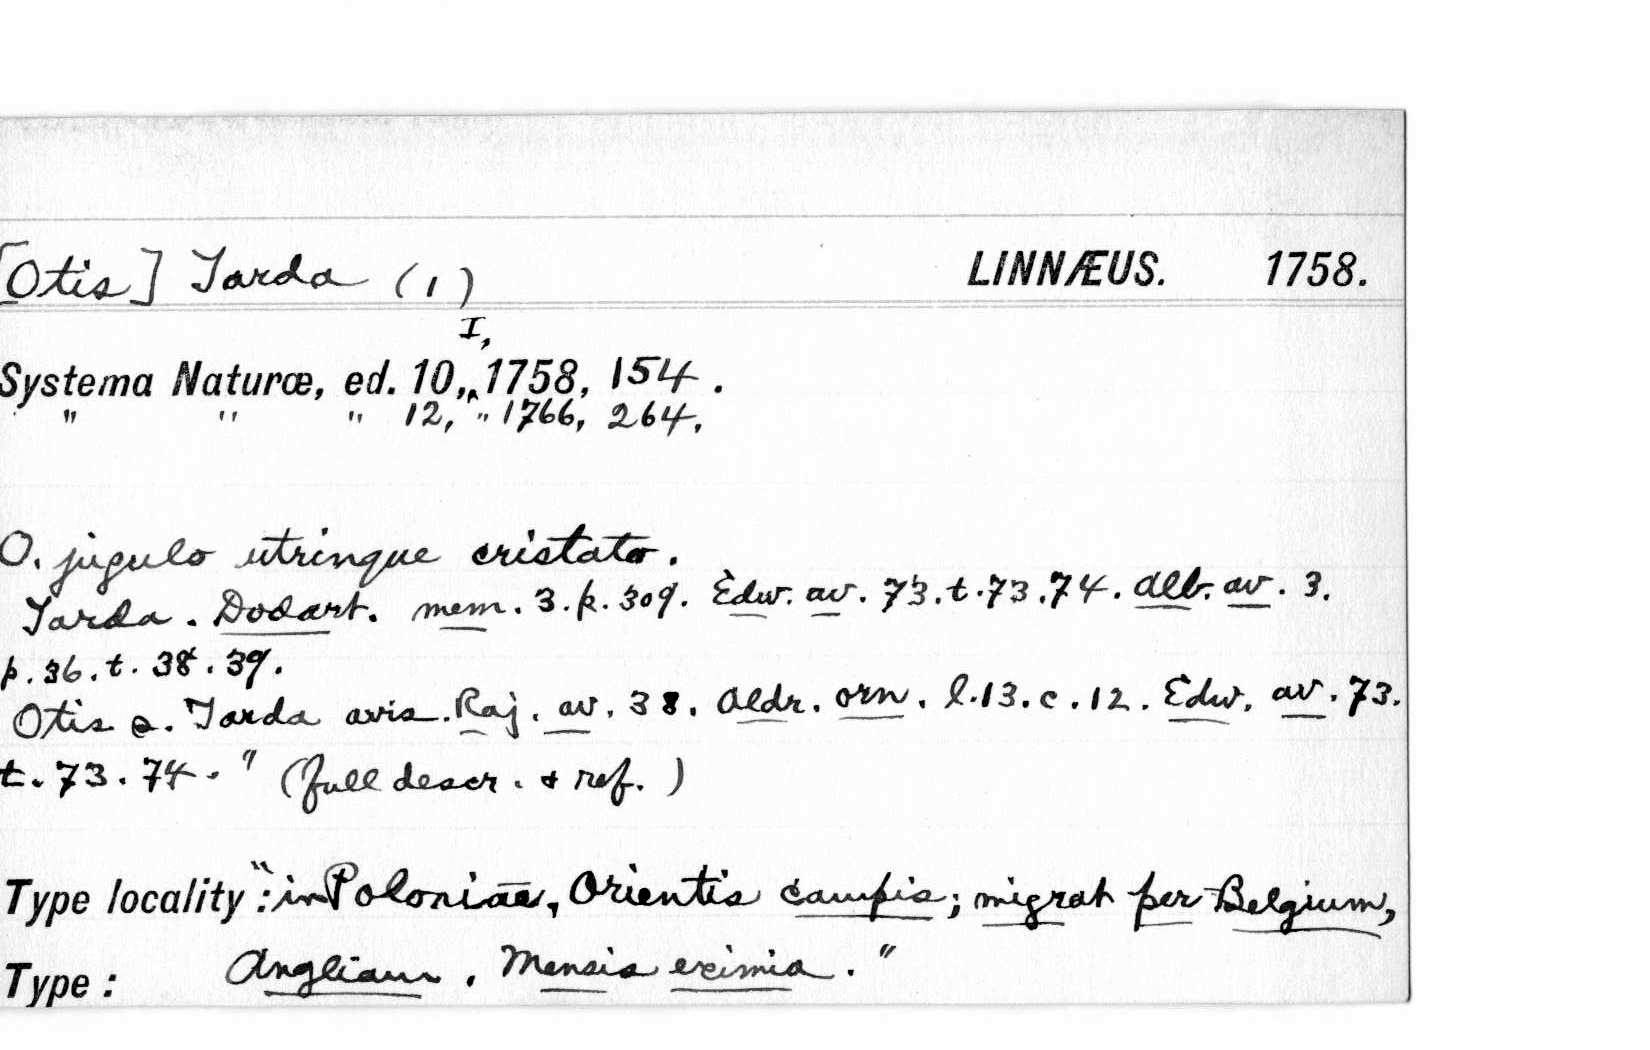 [Otis] Tarda (1) LINNÆUS. 1758.
I,
Systema Naturæ, ed. 10,, 1758, 154.
" " " 12, " 1766, 264,
O. jugulo utrinque cristato.
Tarda. Dodart. mem. 3. p. 309. Edw. av. 73. t. 73. 74. Alb. av. 3.
p. 36. t. 38. 39.
Otis s. Tarda avis. Raj. av. 38. Aldr. orn. l. 13. c. 12. Edw. av. 73.
t. 73. 74." (full descr. & ref.)
Type locality: "in Poloniae, Orientis campis; migrat per Belgium,
Type: Angliam. Mensis eximia."